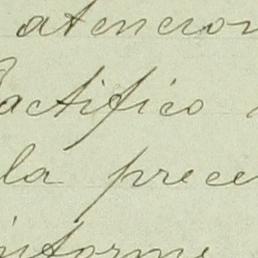 atencion
actifico
la prece
informe